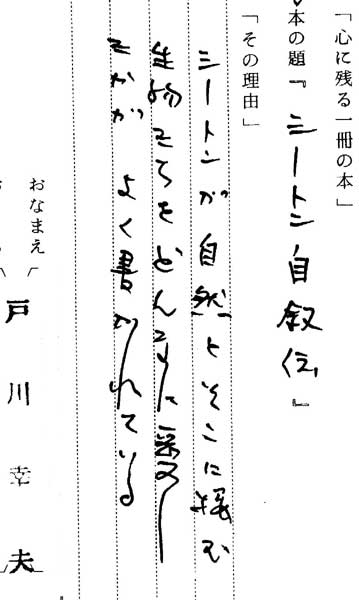 「心に残る一冊の本」
本の題『シートン自叙伝』
「その理由」
シートンが自然とそこに棲む
生物たちをどんなに愛し
たかが よく書かれている
おなまえ
戸川幸夫